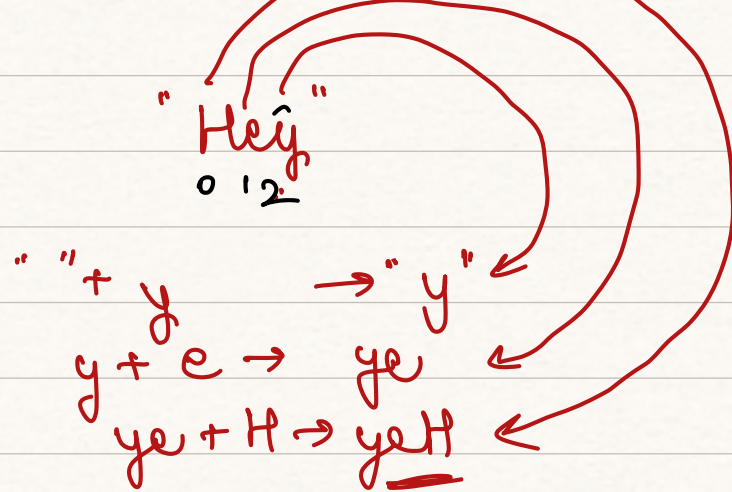 "Hey"
0 1 2
" " + y → "y"
y + e → ye
ye + H → yeH